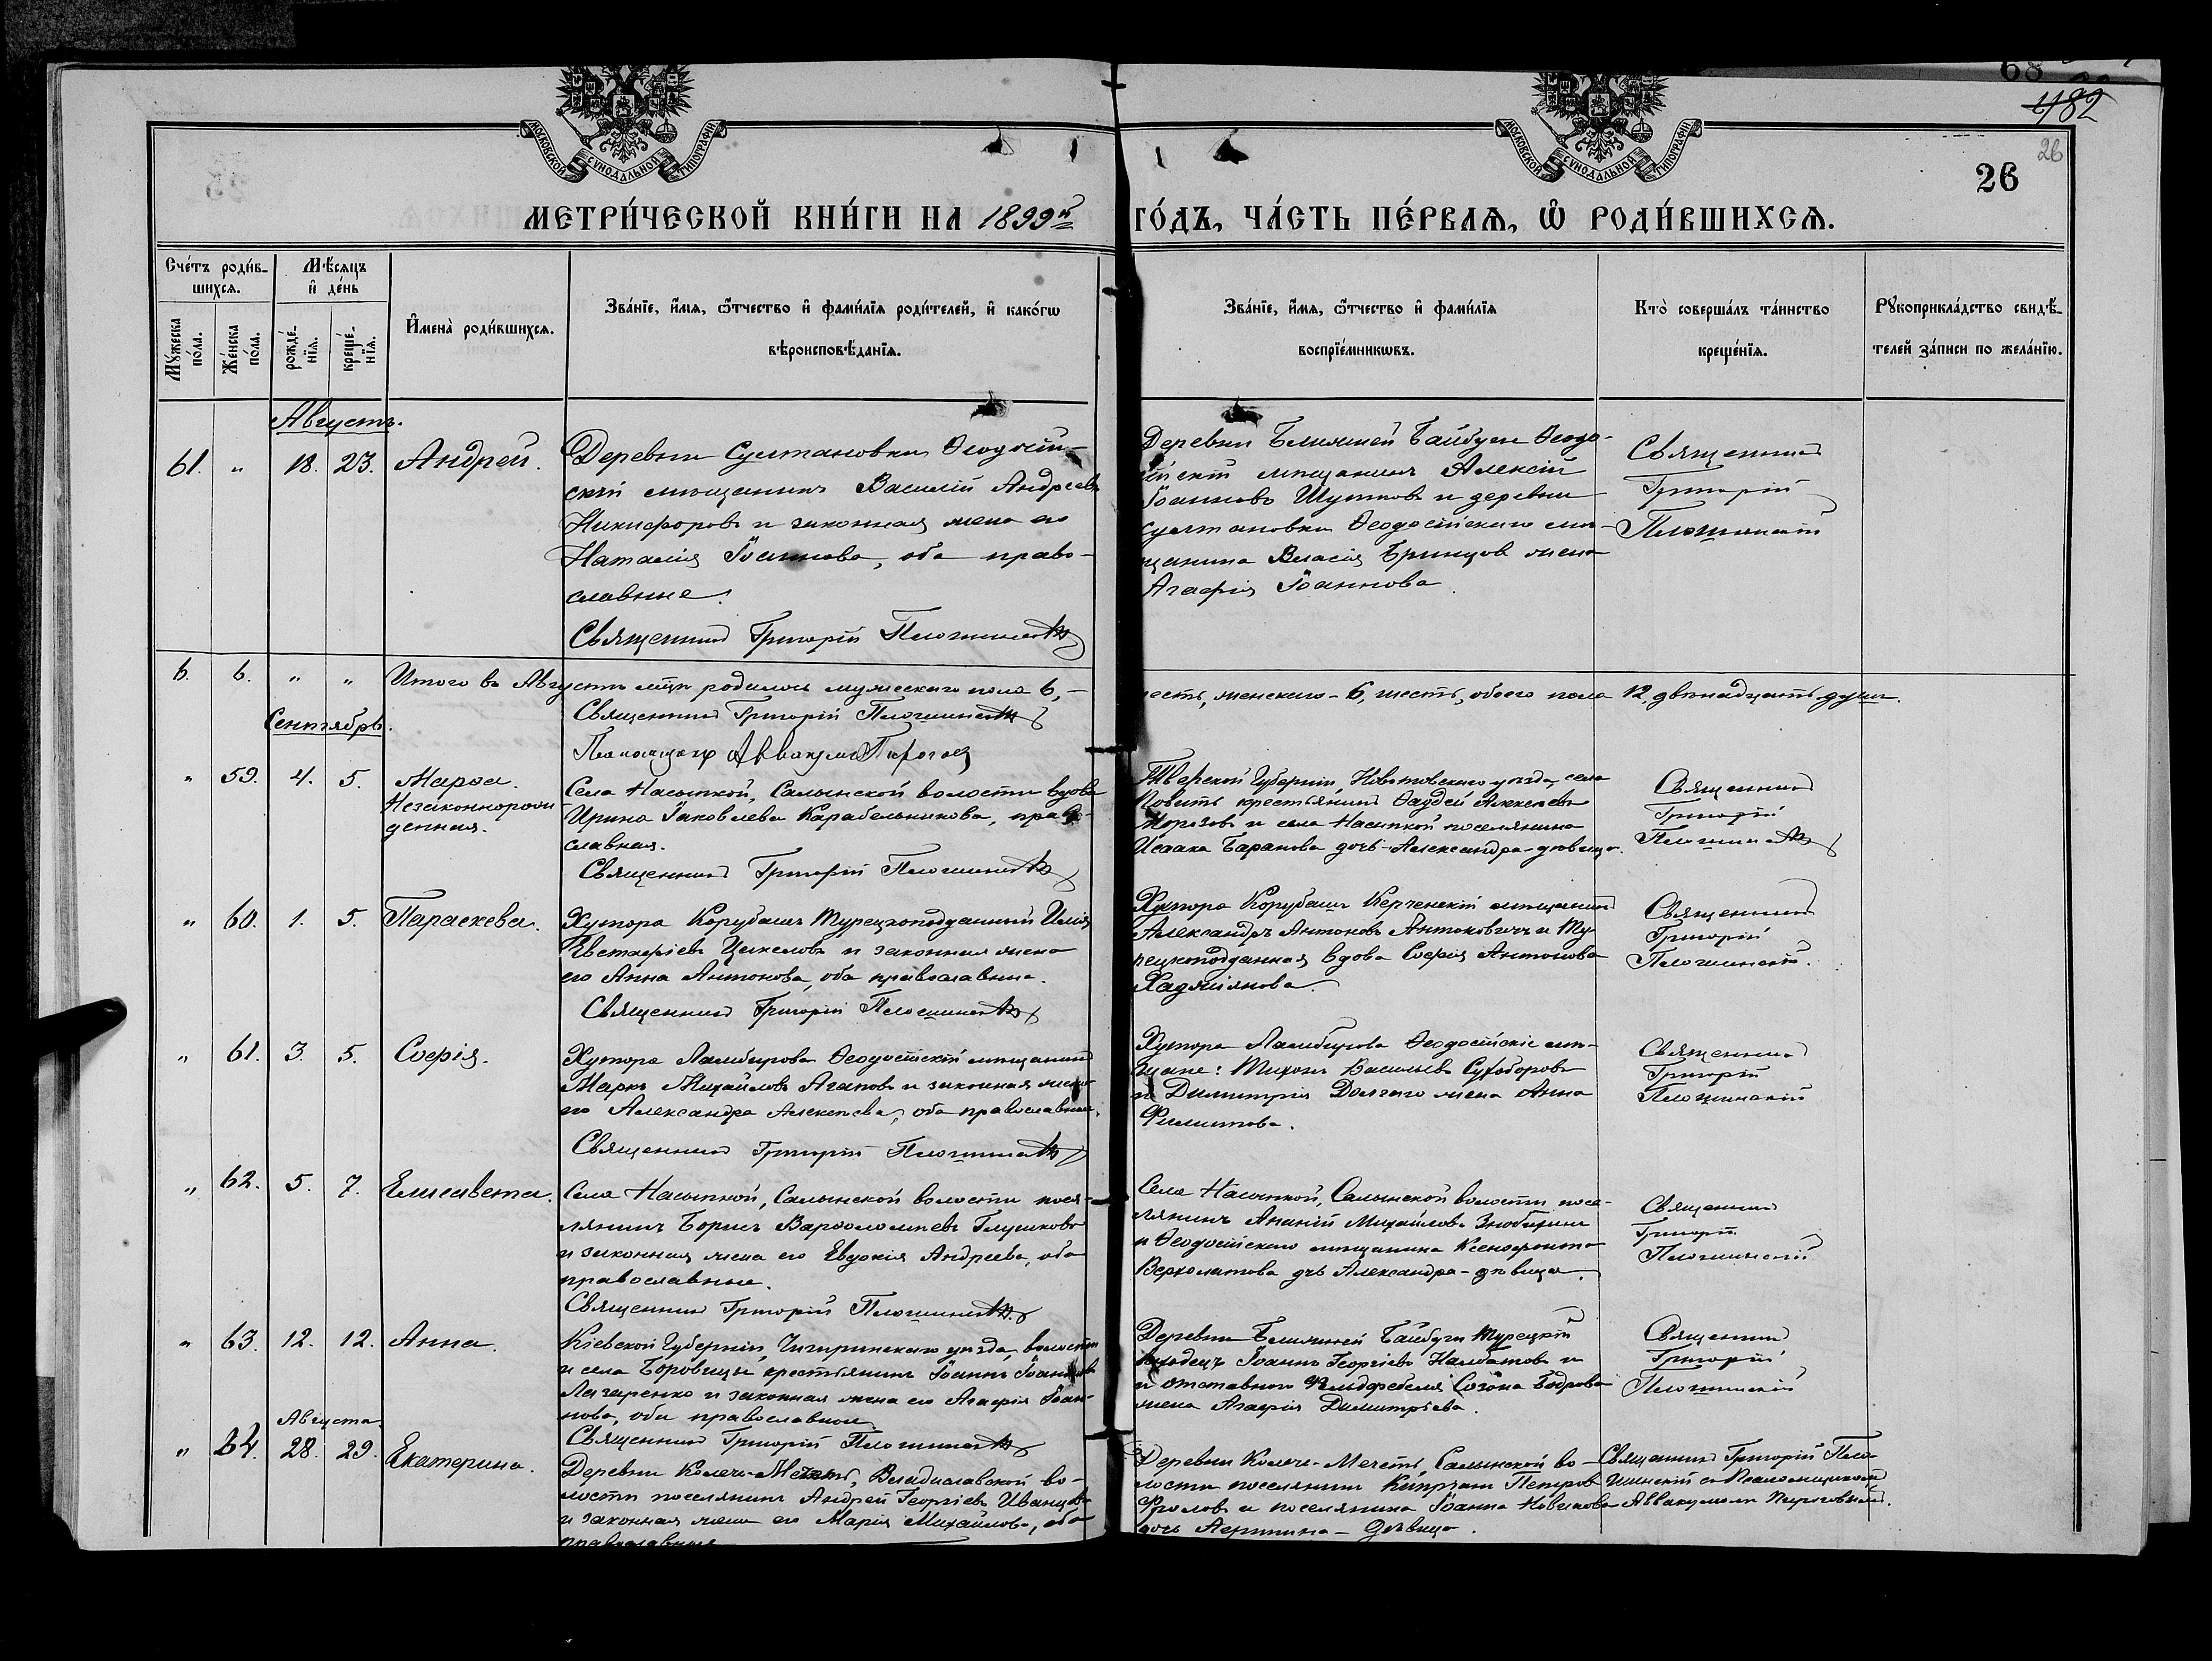 68
482
26
26
МОСКОВСКОЙ СѴНОДАЛЬНОЙ ТИПОГРАФІИ
МОСКОВСКОЙ СѴНОДАЛЬНОЙ ТИПОГРАФІИ
МЕТРИ́ЧЕСКОЙ КНИ́ГИ НА 1899й ГО́ДЪ, ЧА́СТЬ ПЕ́РВАѦ, Ѡ РОДИ́ВШИХСѦ.
Сче́тъ роди́в-
шихсѧ.
Мѣ́сѧцъ
и҆ де́нь
Мꙋ́жеска
по́ла.
Же́нска
по́ла.
рожде́-
нїѧ.
креще́-
нїѧ.
И҆мена̀ роди́вшихсѧ.
Зва́нїе, и҆́мѧ, ѻ҆́тчество и҆ фами́лїѧ роди́телей, и҆ како́гѡ
вѣроисповѣ́данїѧ.
Зва́нїе, и҆́мѧ, ѻ҆́тчество и҆ фами́лїѧ
воспрїе́мникѡвъ.
Кто̀ соверша́лъ та́инство
креще́нїѧ.
Рꙋкоприкла́дство свидѣ́-
телей за́писи по жела́нїю.
Августъ.
61. " 18. 23. Андрей.
Деревни Султановки Ѳеодосій-
скій мѣщанинъ Василій Андреевъ
Никифоровъ и законная жена его
Наталія Іоаннова, оба право-
славные.
Священникъ Григорій
Деревни Ближней Байбуги Ѳеодо-
сійскій мѣщанинъ Алексій
Іоанновъ Шутковъ и деревни
Султановки Ѳеодосійскаго мѣ-
щанина Власія жена
Агафія Іоаннова.
Священникъ
Григорій
6. 6. " " Итого въ Августѣ м-цѣ родилось мужескаго пола 6, -
шесть, женскаго - 6, шесть, обоего пола 12, двѣнадцать душъ.
Священникъ Григорій
Псаломщикъ Аввакумъ Пироговъ
Сентябрь.
" 59. 4. 5. Марѳа.
Незаконнорож-
денная.
Села Насыпкой, Салынской волости вдова
Ирина Іаковлева Карабельникова, право-
славная.
Священникъ Григорій
Тверской Губерніи, уѣзда, села
крестьянинъ Ѳаддей Алексѣевъ
Морозовъ и села Насыпкой поселянина
Исаака Баранова дочь - Александра - дѣвица.
Священникъ
Григорій
" 60. 1. 5. Параскева.
Хутора Корубашъ Турецкоподданный Илія
Евстафіевъ и законная жена
его Анна Антонова, оба православные.
Священникъ Григорій
Хутора Корубашъ Керченскій мѣщанинъ
Александръ Антоновъ Антоновичъ и Ту-
рецкоподданная вдова Софія Антонова
Священникъ
Григорій
" 61. 3. 5. Софія.
Хутора Ѳеодосійскій мѣщанинъ
Маркъ Михайловъ Агаповъ и законная жена
его Александра Алексѣева, оба православные.
Священникъ Григорій
Хутора Ѳеодосійскіе мѣ-
щане: Тихонъ Васильевъ Сухоборовъ
и Димитрія Долгаго жена Анна
Филиппова.
Священникъ
Григорій
" 62. 5. 7. Елисавета.
Села Насыпкой, Салынской волости посе-
лянинъ Борисъ Варѳоломеевъ Глушковъ
и законная жена его Евдокія Андреева, оба
православные.
Священникъ Григорій
Села Насыпкой, Салынской волости посе-
лянинъ Ананій Михайловъ
и Ѳеодосійскаго мѣщанина Ксенофонта
дчь Александра - дѣвица.
Священникъ
Григорій
" 63. 12. 12. Анна.
Кіевской Губерніи, Чигиринскаго уѣзда, волости
и села Боровицы крестьянинъ Іоаннъ Іоанновъ
Лазаренко и законная жена его Агафія Іоан-
нова, оба православные.
Священникъ Григорій
Деревни Ближней Байбуги Турецкій
выходецъ Іоаннъ Георгіевъ Налбатовъ и
и отставного Фельдфебеля Созона Бодрова
жена Агафія Димитріева.
Священникъ
Григорій
Августа
" 64. 28. 29. Екатерина.
Деревни Колечь-Мечеть, Владиславской во-
лости поселянинъ Андрей Георгіевъ Иванцовъ
и законная жена его Марія Михайлова, оба
православные
Деревни Колечь-Мечеть, Салынской во-
лости поселянинъ Кипріанъ Петровъ
Фроловъ и поселянина Іоанна Новикова
дочь - дѣвица.
Священникъ Григорій
съ Псаломщикомъ
Аввакумомъ Пироговымъ.